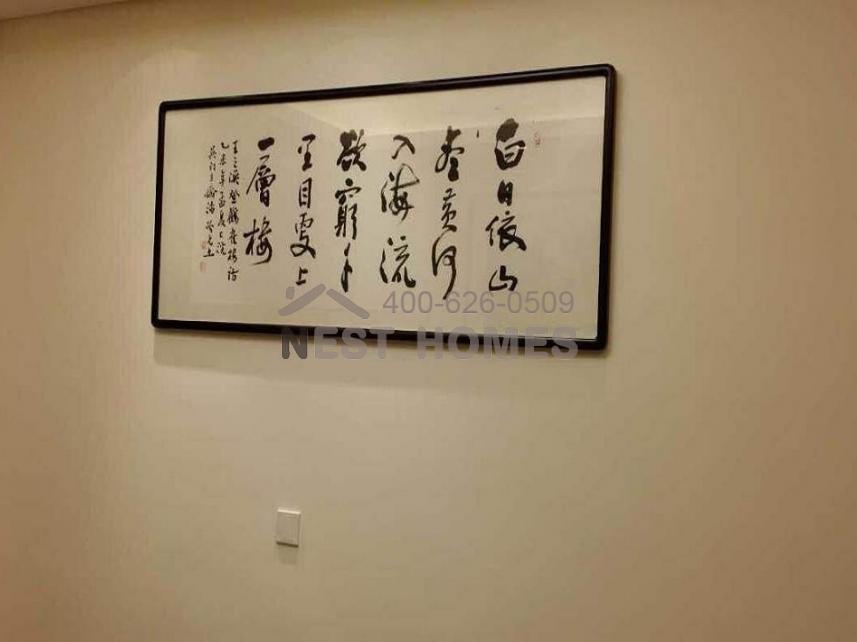 白日依山
尽黄河
入海流
欲窮千
里目更上
一層楼
王之渙登鸛雀楼詩
乙未年孟夏
400-626-0509
NEST HOMES